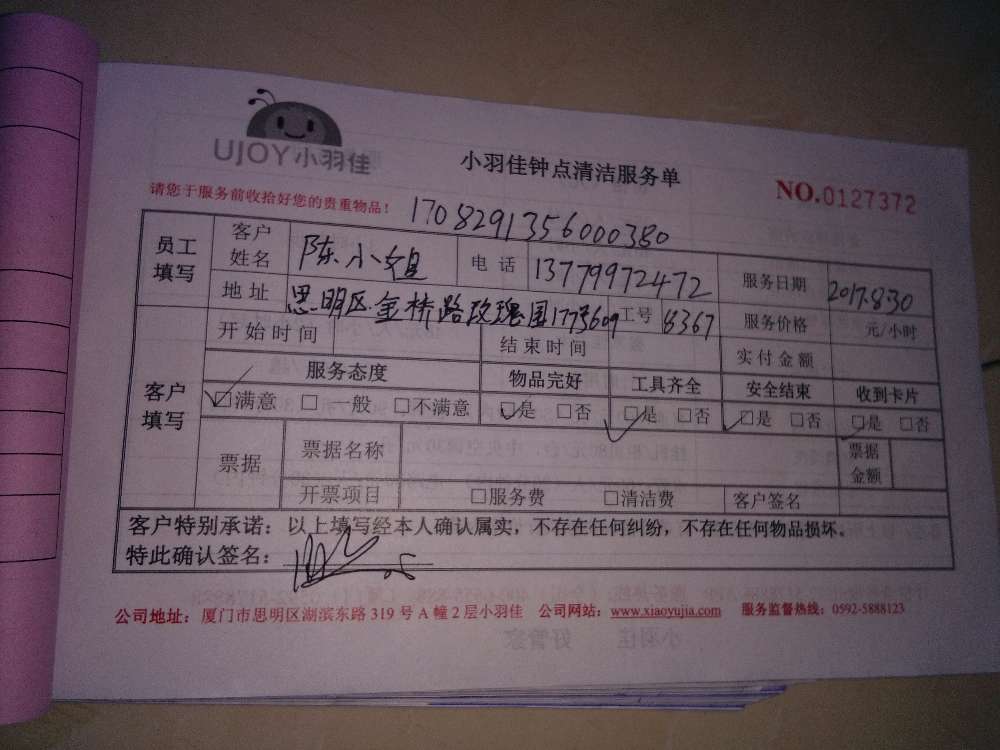 UJOY小羽佳
小羽佳钟点清洁服务单
NO.0127372
请您于服务前收拾好您的贵重物品！
1708291356000380
员工填写 客户姓名 陈小姐 电话 13779972472 服务日期 2017.8.30
地址 思明区金桥路玫瑰园 工号 8367 服务价格 元/小时
客户填写 开始时间 结束时间 实付金额
服务态度 物品完好 工具齐全 安全结束 收到卡片
☑满意 □一般 □不满意 ☑是 □否 ☑是 □否 ☑是 □否 ☑是 □否
票据 票据名称 票据金额
开票项目 □服务费 □清洁费 客户签名
客户特别承诺：以上填写经本人确认属实，不存在任何纠纷，不存在任何物品损坏。
特此确认签名：
公司地址：厦门市思明区湖滨东路 319 号 A 幢 2 层小羽佳 公司网站：www.xiaoyujia.com 服务监督热线：0592-5888123